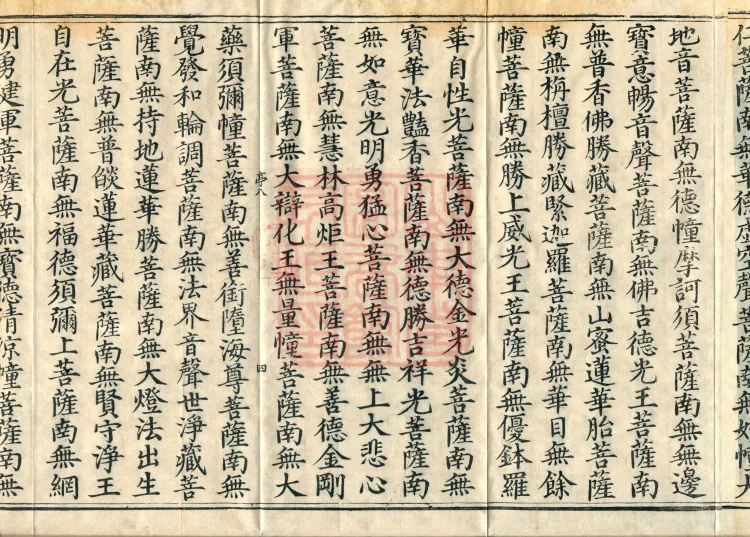 仁菩薩南無華德虛空聲菩薩南無如幢大
地音菩薩南無德幢摩訶須菩薩南無無邊
寶意暢音聲菩薩南無佛吉德光王菩薩南
無普香佛勝藏菩薩南無山蜜蓮華胎菩薩
南無栴檀勝藏緊迦羅菩薩南無華目無餘
幢菩薩南無勝上威光王菩薩南無優鉢羅
華自性光菩薩南無大德金光炎菩薩南無
寶華法豔香菩薩南無德勝吉祥光菩薩南
無如意光明勇猛心菩薩南無無上大悲心
菩薩南無慧林高炬王菩薩南無善德金剛
軍菩薩南無大辯化王無量幢菩薩南無大
亭八 四
藥須彌幢菩薩南無善銜墮海尊菩薩南無
覺發和輪調菩薩南無法界音聲世淨藏菩
薩南無持地蓮華勝菩薩南無大燈法出生
菩薩南無普燄蓮華藏菩薩南無賢守淨王
自在光菩薩南無福德須彌上菩薩南無網
明勇建軍菩薩南無寶德清涼幢菩薩南無